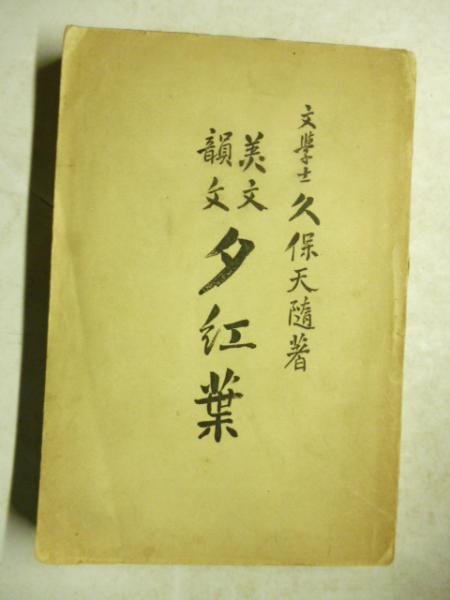 文學士久保天隨著
美文
韻文
夕紅葉